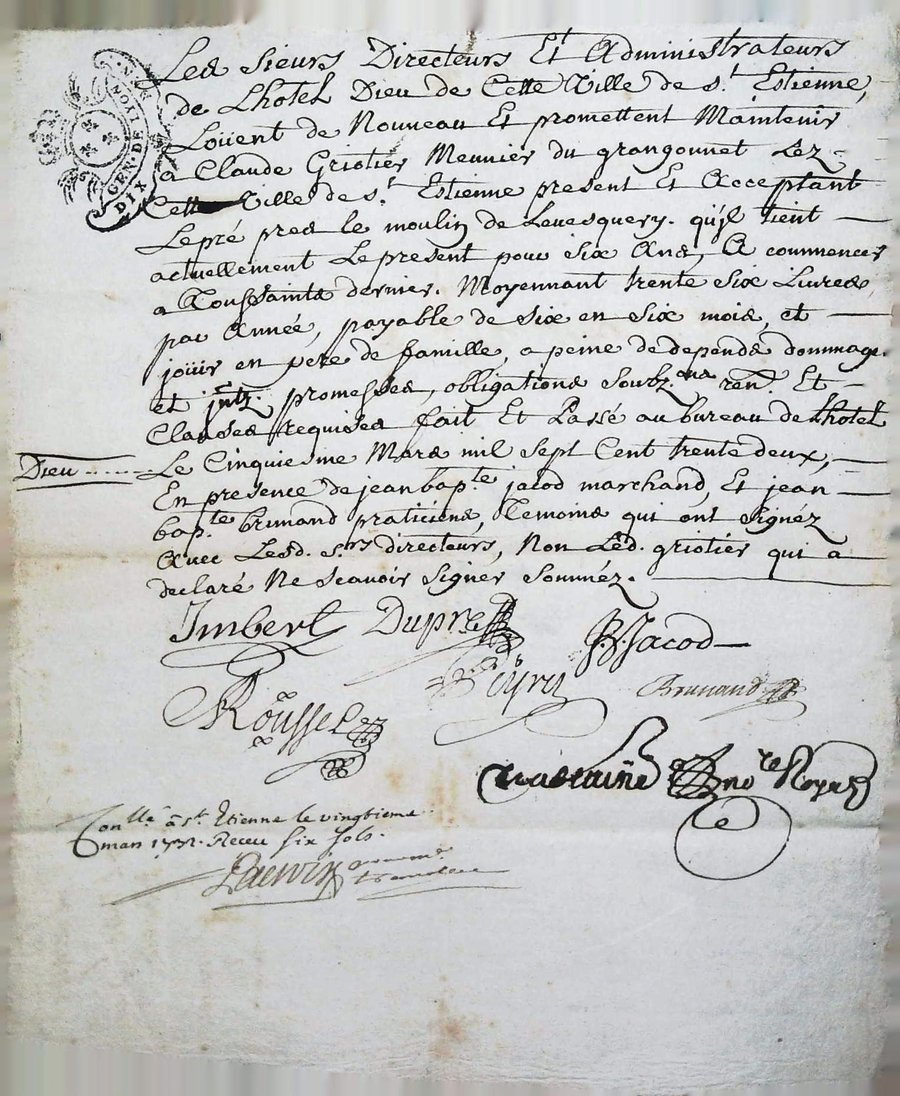 GEN. DE LYON
DIX
Les Sieurs Directeurs Et Administrateurs
de Lhotel Dieu de Cette Ville de s.t Estienne,
Loüent de Nouveau Et promettent Maintenir
a Claude Griotier Meunier du grangonnet Lez-
Cette Ville de s.t Estienne present Et Acceptant
Lepré pres le moulin de Levesquery. qu'jl tient
actuellement Le present pour six Ans, A commencer
a Toussaints dernier. Moyennant trente six Livres,
par Année, payable de six en six mois, et
joüir en pere de famille, a peine de depends dommage.
et jntz. promesses, obligations soubz.ons ren.n Et
Clauses requises fait Et Passé au bureau de Lhotel
Dieu Le Cinquiesme Mars mil sept Cent trente deux,
En presence de jean bap.te jacod marchand, Et jean
bap.te brunand praticiens, Temoins qui ont signéz
avec Lesd. s.rs directeurs, Non Led. griotier qui a
declaré Ne scavoir signer Somméz.
Imbert Dupré JB Jacod
Peyret Brunand
Rousset
no.re Royal
Con.llé à st. Etienne le vingtieme
mars 1732. Receu six sols.